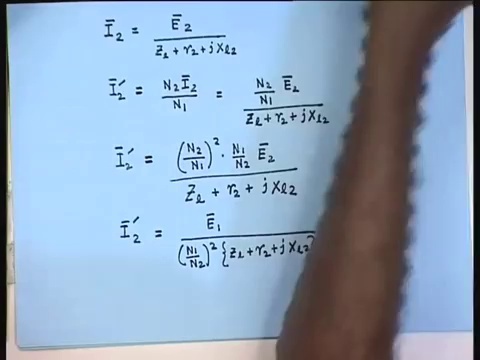 Ī₂ = Ē₂ / (Z_l + r₂ + jX_l2)
Ī₂′ = N₂Ī₂ / N₁ = (N₂/N₁) Ē₂ / (Z_l + r₂ + jX_l2)
Ī₂′ = (N₂/N₁)² · (N₁/N₂) Ē₂ / (Z_l + r₂ + jX_l2)
Ī₂′ = Ē₁ / (N₁/N₂)² {Z_l + r₂ + jX_l2}